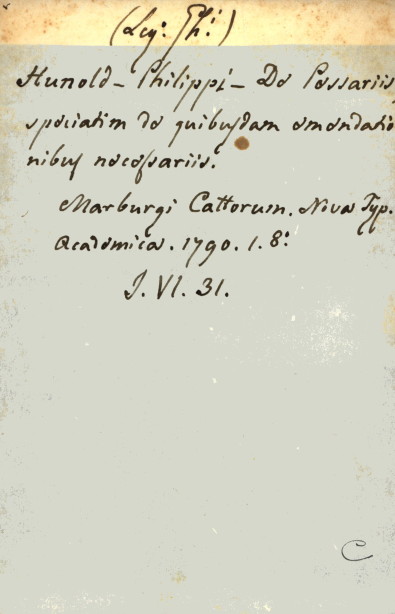 (Ley: Th:)
Hunold - Philippi - De Pessariis,
speciatim de quibusdam emendatio
nibus necessariis.
Marburgi Cattorum. Nova Typ.
Academica. 1790. 1. 8:
J. VI. 31.
C